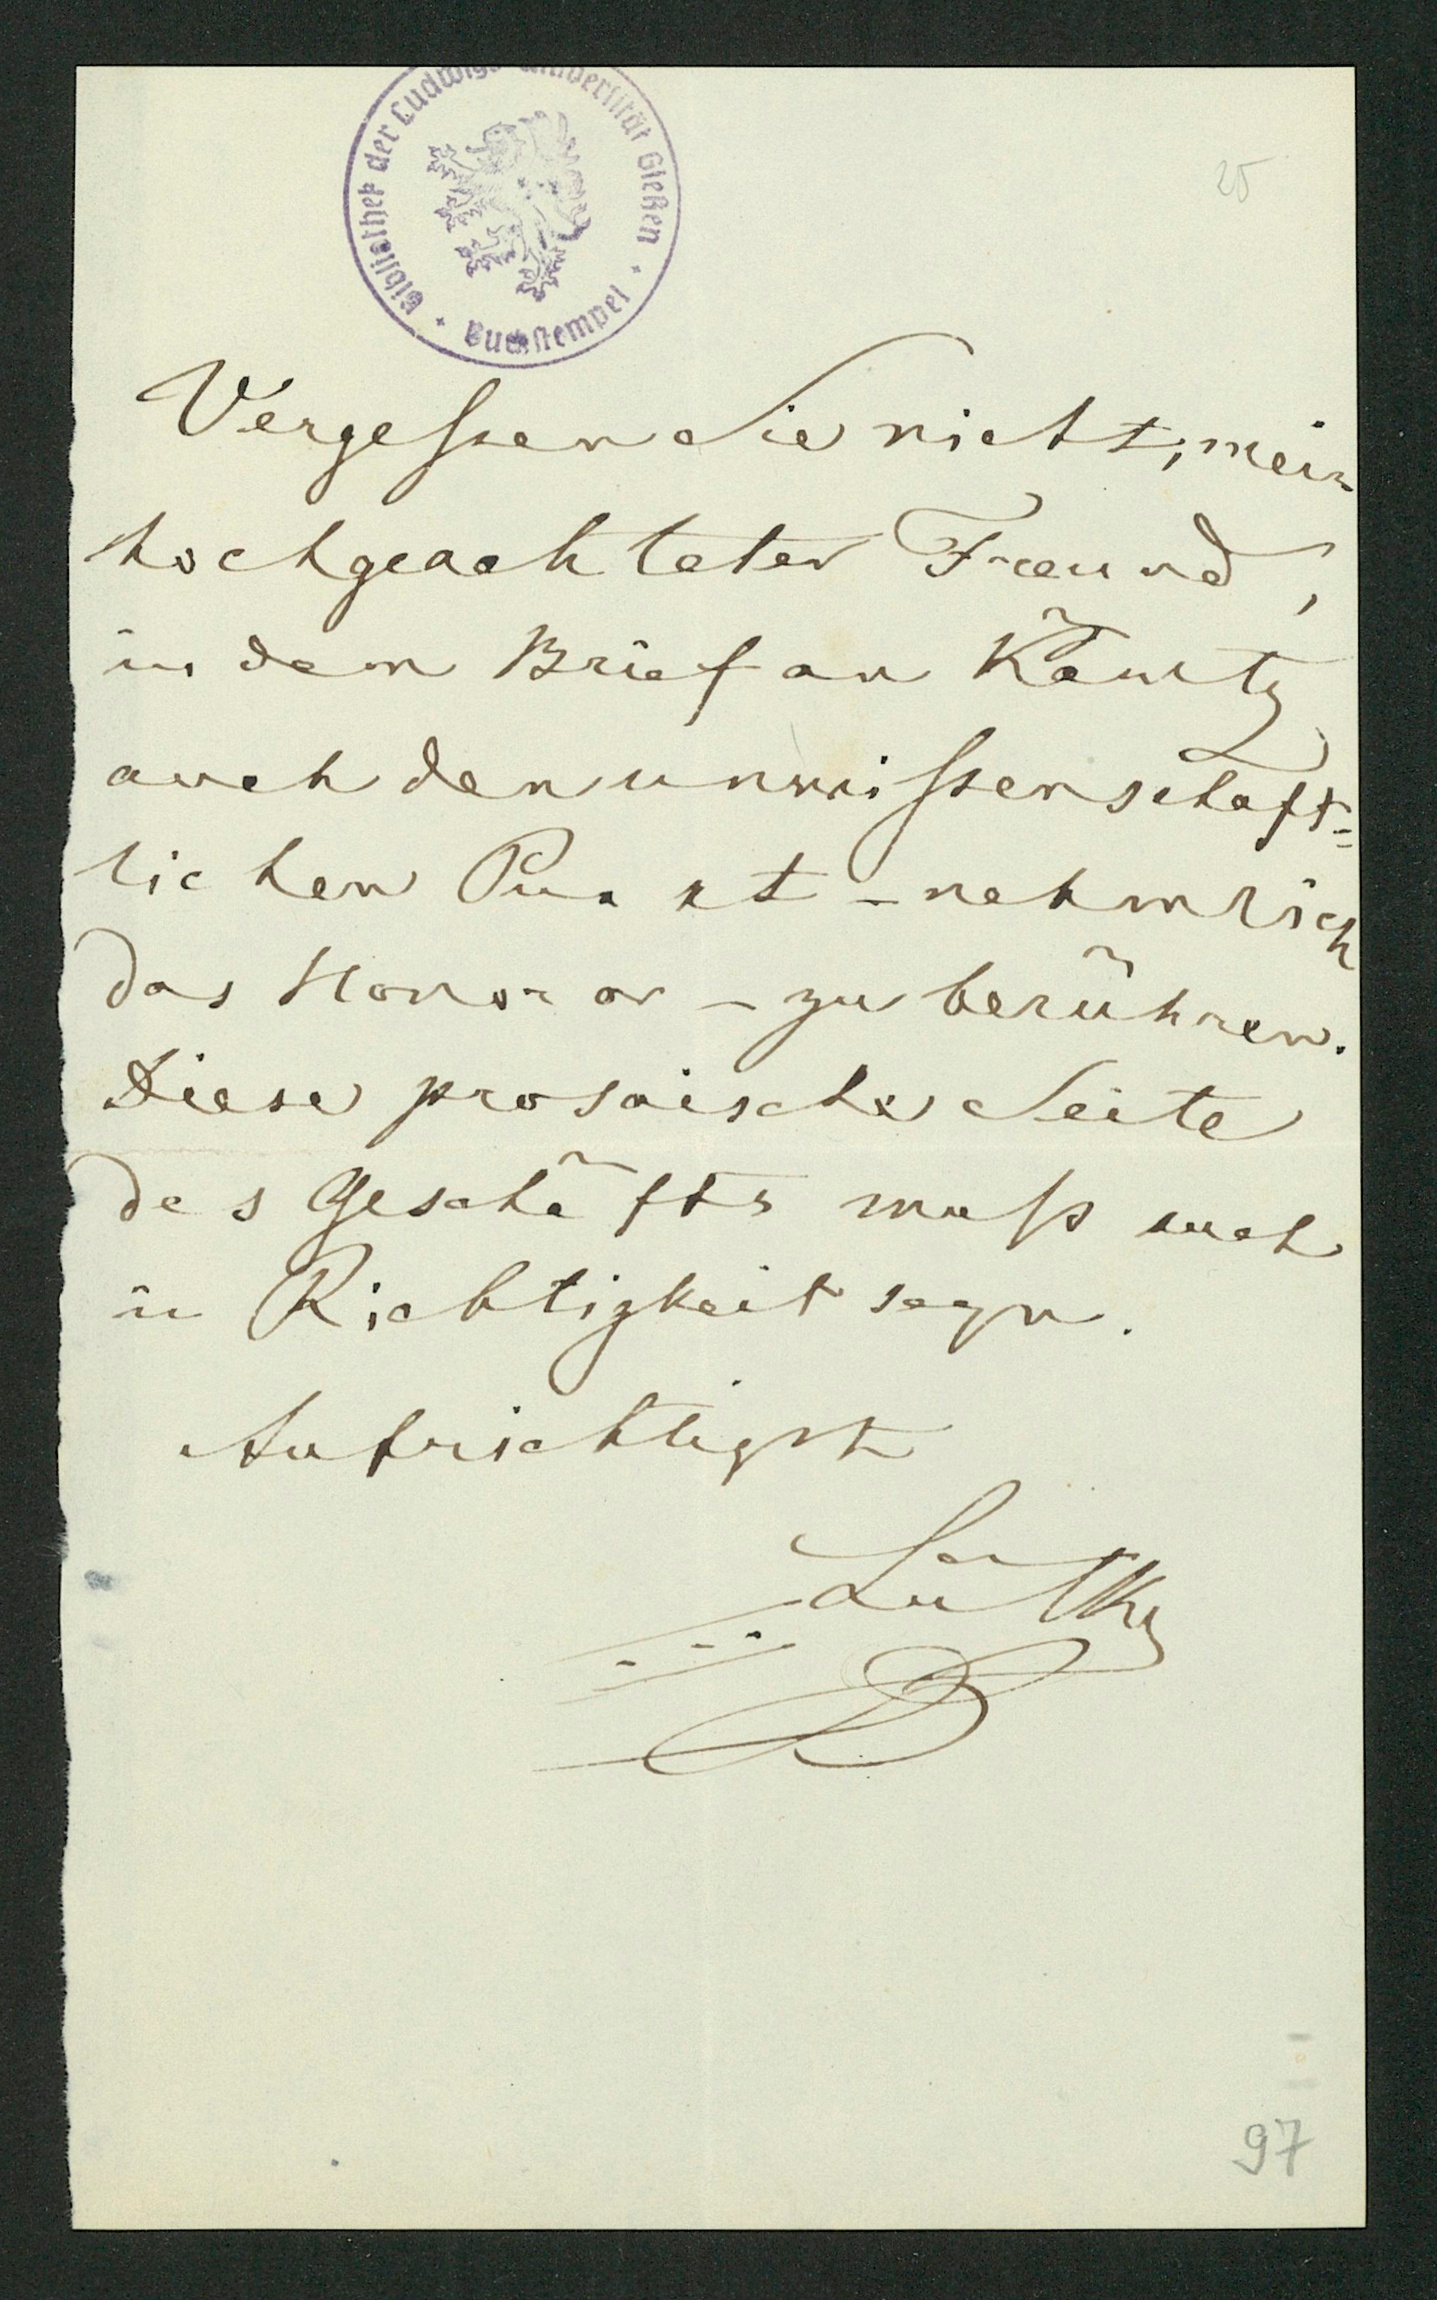 Bibliothek der Ludwigs-Universität Gießen
Buchstempel
25
Vergessen Sie nicht, mein
hochgeachteter Freund,
in dem Brief an Kämtz
auch den unwissenschaft=
lichen Punkt – nehmlich
das Honorar – zu berühren.
Diese prosaische Seite
des Geschäfts muß auch
in Richtigkeit seyn.
Aufrichtigst
Lütke
97